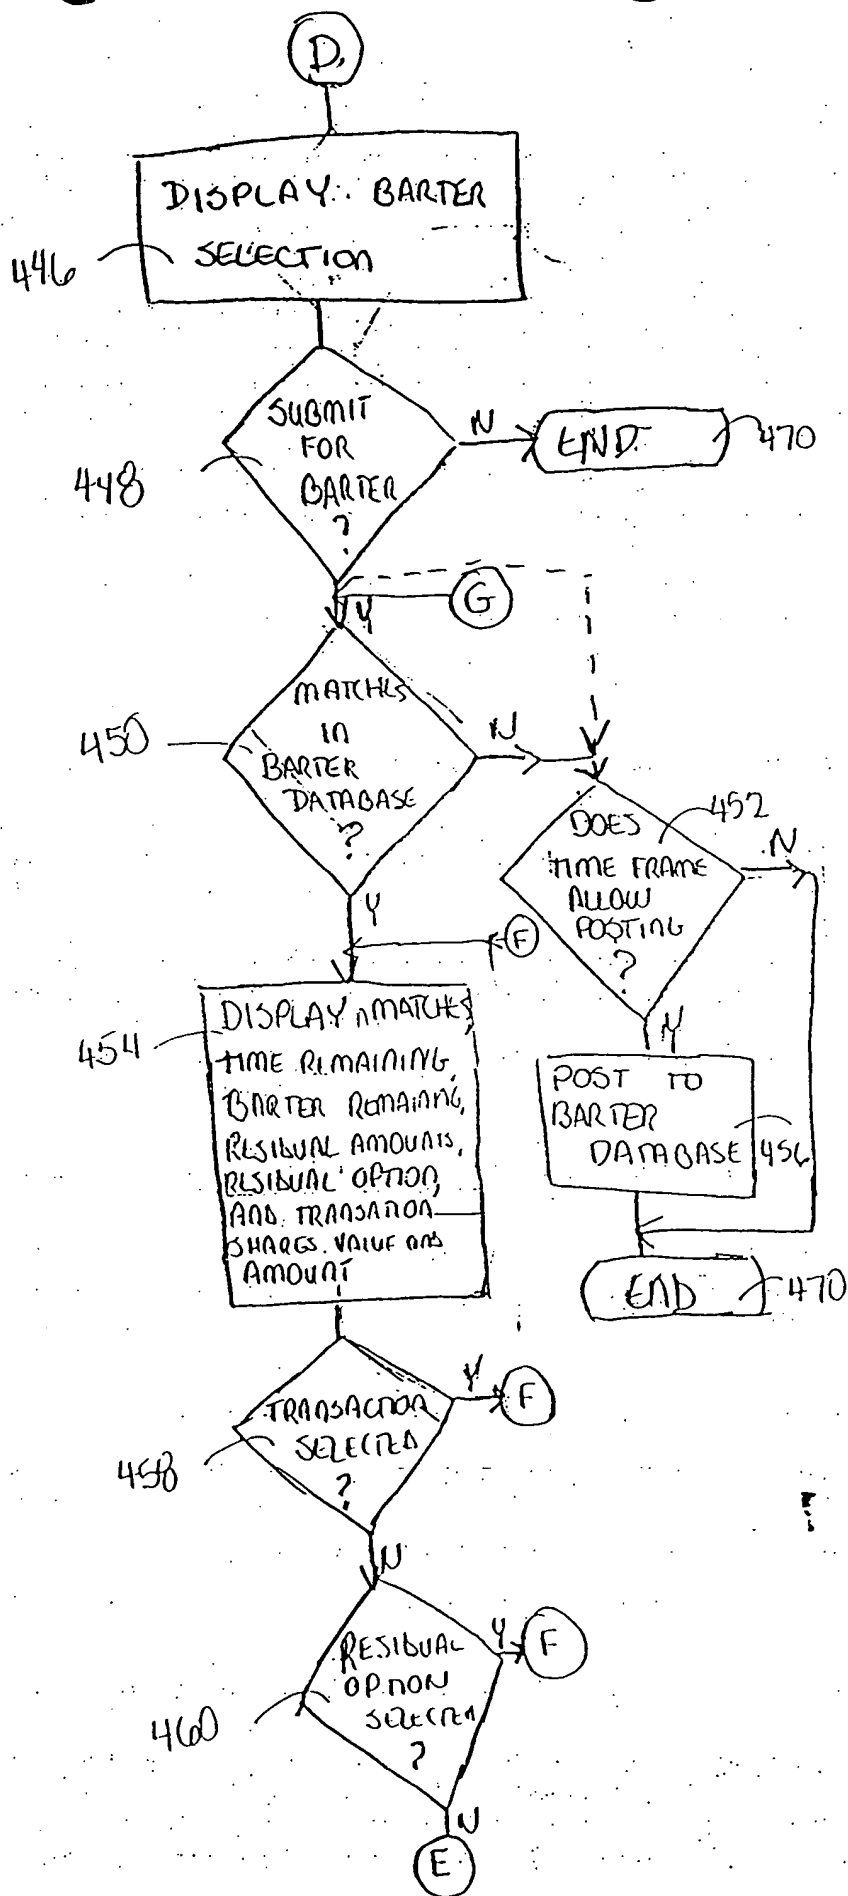 D.
DISPLAY BARTER
SELECTION
446
SUBMIT
FOR
BARTER
?
448
N
END.
470
G
Y
MATCHES
IN
BARTER
DATABASE
?
450
N
452
DOES
TIME FRAME
ALLOW
POSTING
?
N
Y
F
DISPLAY n MATCHES,
TIME REMAINING,
BARTER REMAINING,
RESIDUAL AMOUNTS,
RESIDUAL OPTION,
AND TRANSATION
SHARES VALUE AND
AMOUNT
454
Y
POST TO
BARTER
DATABASE
456
END
470
TRANSACTION
SELECTED
?
458
Y
F
N
RESIDUAL
OPTION
SELECTED
?
460
Y
F
N
E